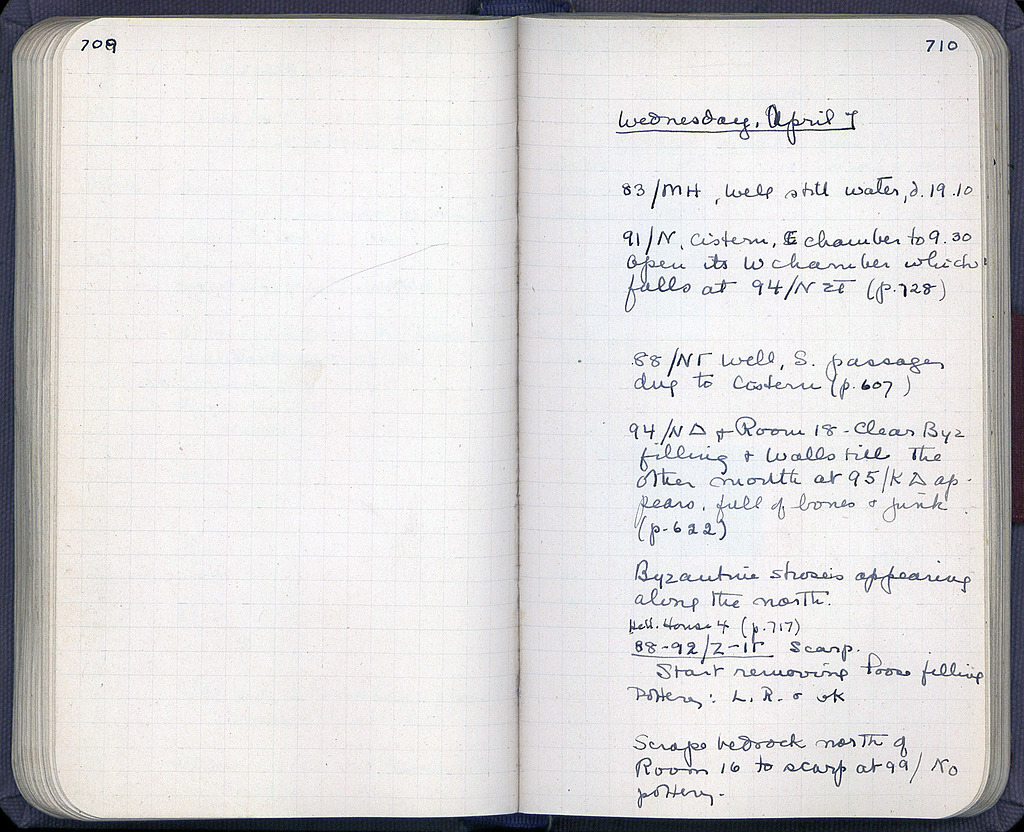 709
710
Wednesday, April 7
83/MH, Well still water, d. 19.10
91/N, Cistern, E chamber to 9.30
Open its W chamber which
falls at 94/N ΣΤ (p.728)
88/ΝΓ Well, S. passages
dug to Cistern (p.607)
94/ΝΔ & Room 18 - Clear Byz
filling & walls till the
other mouth at 95/ΚΔ ap-
pears, full of bones & junk
(p.622)
Byzantine stroses appearing
along the north.
Hell. House 4 (p.717)
88-92/Z-ΙΓ Scarp.
Start removing loose filling
Pottery: L. R. &
Scrape bedrock north of
Room 16 to scarp at 99/ No
pottery.